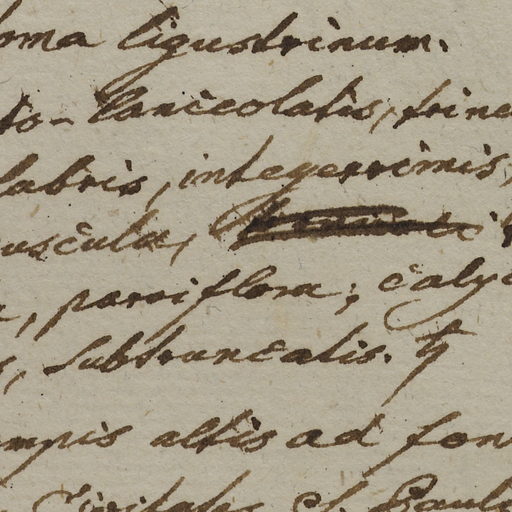 oma ligustrinum.
to-lanceolatis, trine
labris, integerrimis,
uscula,
, parviflora; calyc
s, subtruncatis. ♄
ampis altis ad fon
Civitatis S. Paul